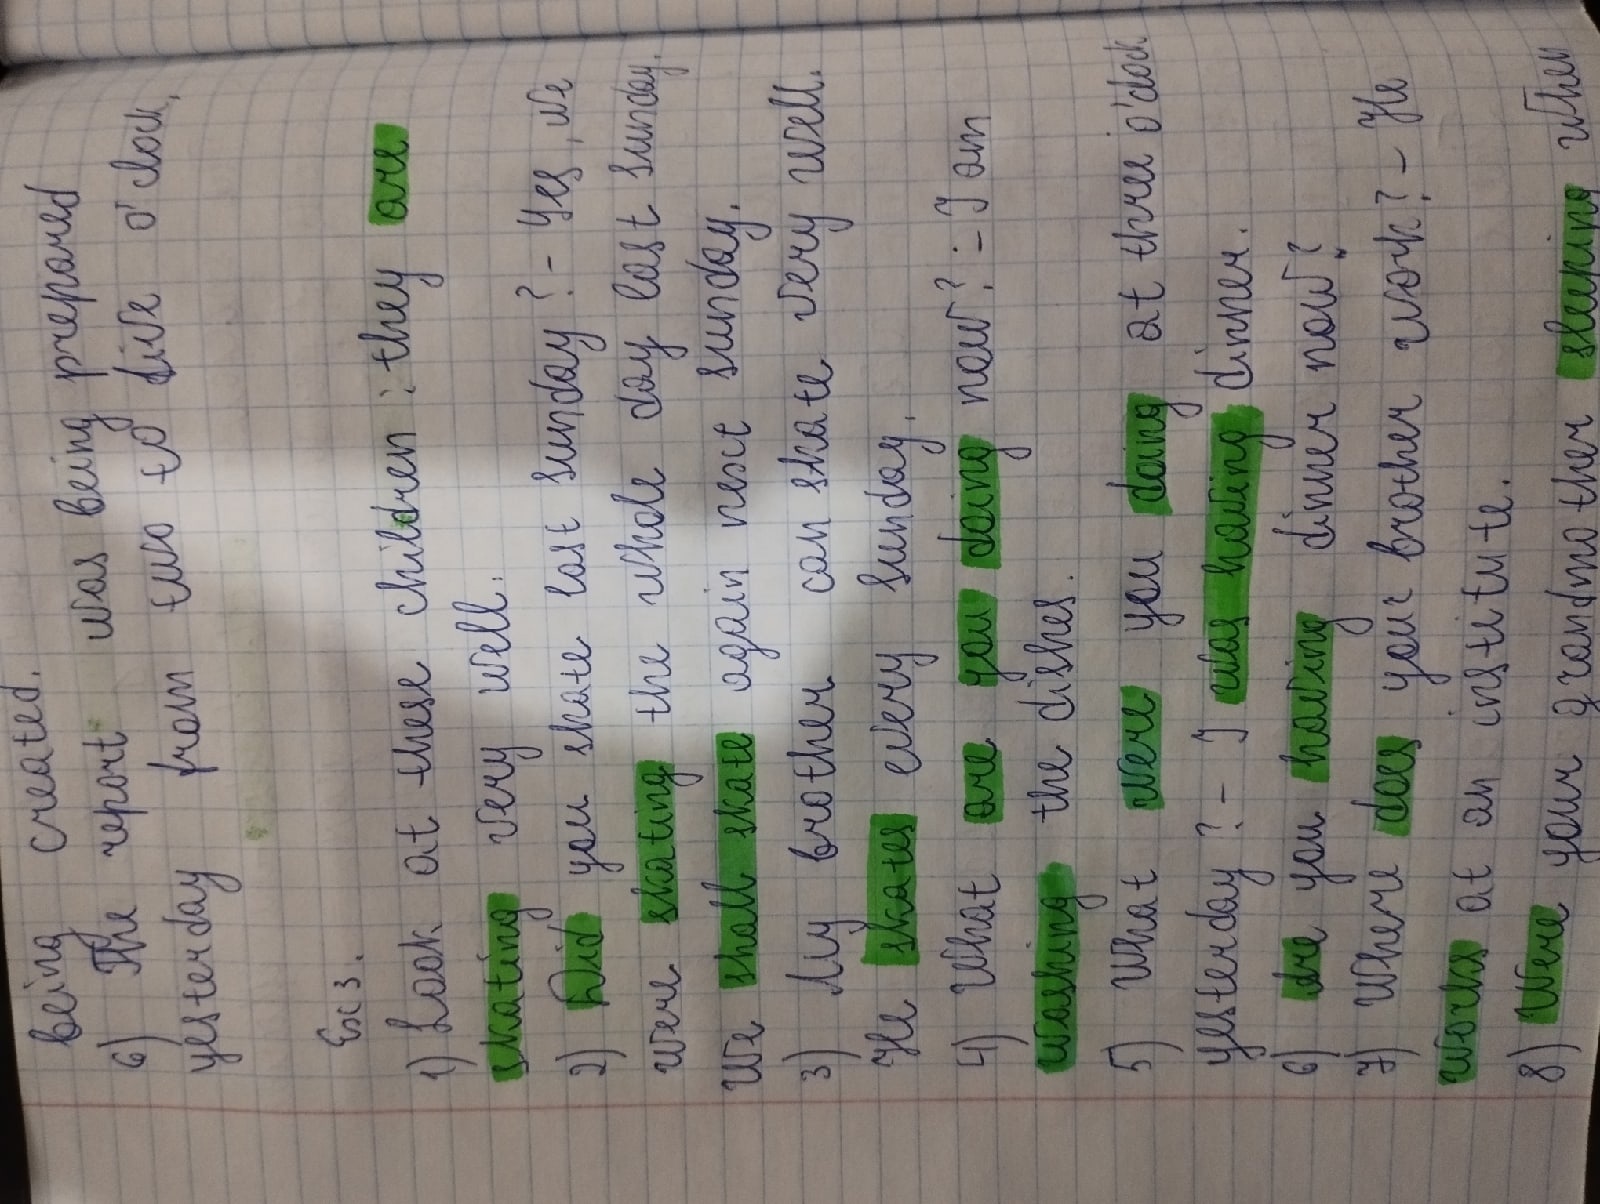 being created.
6) The report was being prepared
yesterday from two to five o'clock,
Ex 3.
1) Look at these children : they are
skating very well.
2) Did you skate last Sunday? - Yes, we
were skating the whole day last Sunday.
We shall skate again next Sunday.
3) My brother can skate very well.
He skates every Sunday.
4) What are you doing now? - I am
washing the dishes.
5) What were you doing at three o'clock
yesterday? - I was having dinner.
6) Are you having dinner now?
7) Where does your brother work? - He
works at an institute.
8) Were your grandmother sleeping when